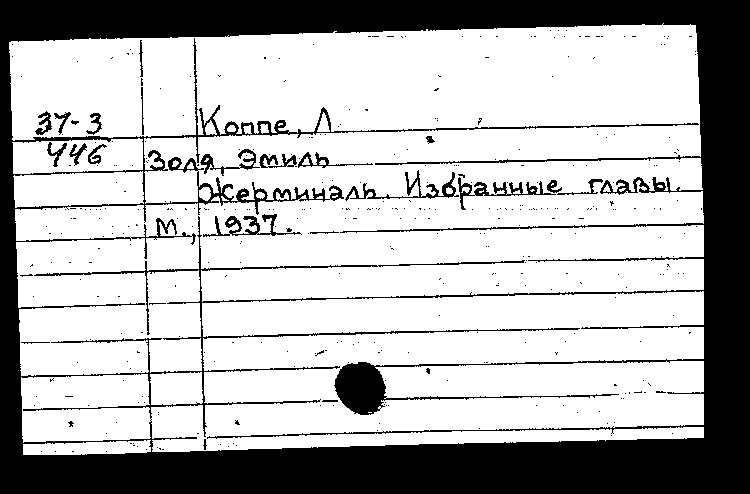 37-3 Коппе, Л
446 Золя, Эмиль
Жерминаль. Избранные главы.
М., 1937.